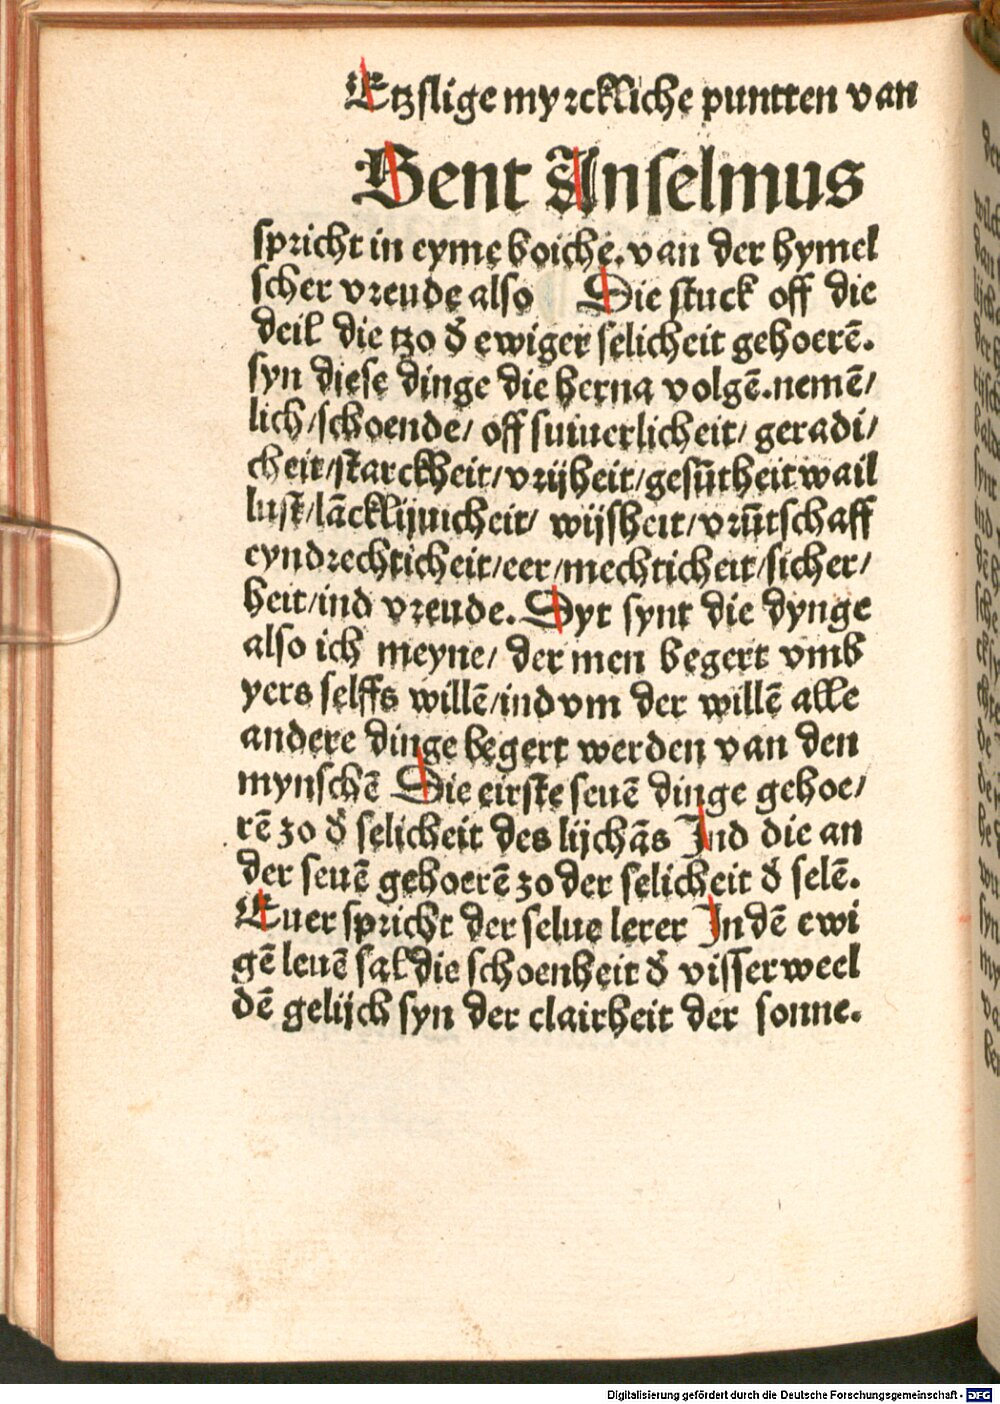 Etzslige myrckliche puntten van
Sent Anselmus
spricht in eyme boiche. van der hymel
scher vreude also Die stuck off die
deil die tzo d̕ ewiger selicheit gehoerē.
syn diese dinge die herna volgē. nemē/
lich/schoende/ off suiuerlicheit/ geradi/
cheit/starckheit/vrijheit/gesūtheit wail
lust/lācklijuicheit/ wijsheit/vrūtschaff
eyndrechticheit/eer/mechticheit/sicher/
heit/ind vreude. Dyt synt die dynge
also ich meyne/ der men begert vmb
yers selffs willē/ind vm der willē alle
andere dinge begert werden van den
mynschē Die eirste seuē dinge gehoe/
rē zo d̕ selicheit des lijchās Ind die an
der seuē gehoerē zo der selicheit d̕ selē.
Euer spricht der selue lerer In dē ewi
gē leuē sal die schoenheit d̕ visserweel
dē gelijch syn der clairheit der sonne.
Digitalisierung gefördert durch die Deutsche Forschungsgemeinschaft - DFG